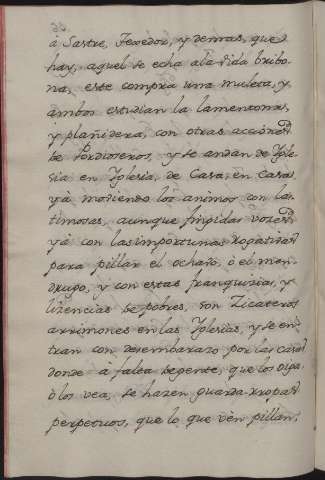 à Sastre, Texedor, y demas, que
hay, aquel se echa ala vida bribo-
na, este compra una muleta, y
ambos estudian la lamentona,
y plañidera, con otras acciones
de Pordioseros, y se andan de Igle-
sia en Iglesia, de Casa, en casa,
yà moviendo los animos con las-
timosas, aunque fingidas vozes,
yà con las importunas rogativas
para pillar el ochavo, ò el men-
drugo, y con estas franquizias, y
lizencias de pobres, son Zicateros
arrimones en las Iglesias, y se en-
tran con desembarazo por las Casas
donde à falta de gente, que los oiga
ò los vea, se hazen guarda-ropas
perpetuos, que lo que vèn pillan,